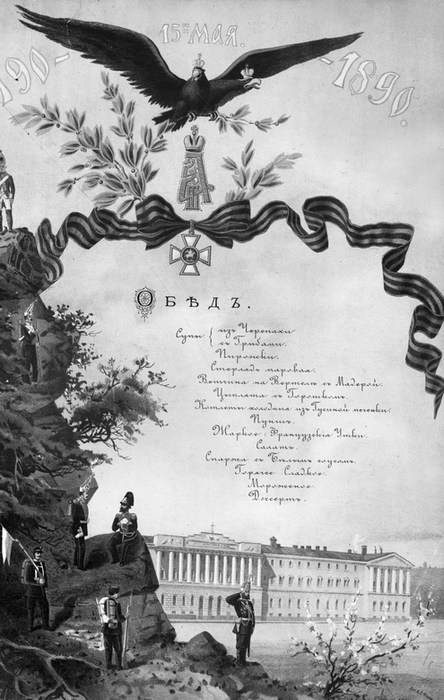 1790-
15го МАЯ.
-1890.
ОБѢДЪ.
Супы { изъ Черепахи
съ Грибами.
Пирожки.
Стерлядь паровая.
Ветчина на Вертелѣ съ Мадерой.
Цыплята съ Горошкомъ.
Котлеты холодныя изъ Гусиной печенки.
Пуншъ.
Жаркое: Французскія Утки.
Салатъ.
Спаржа съ Бѣлымъ соусомъ.
Горячее Сладкое.
Мороженое.
Дессертъ.